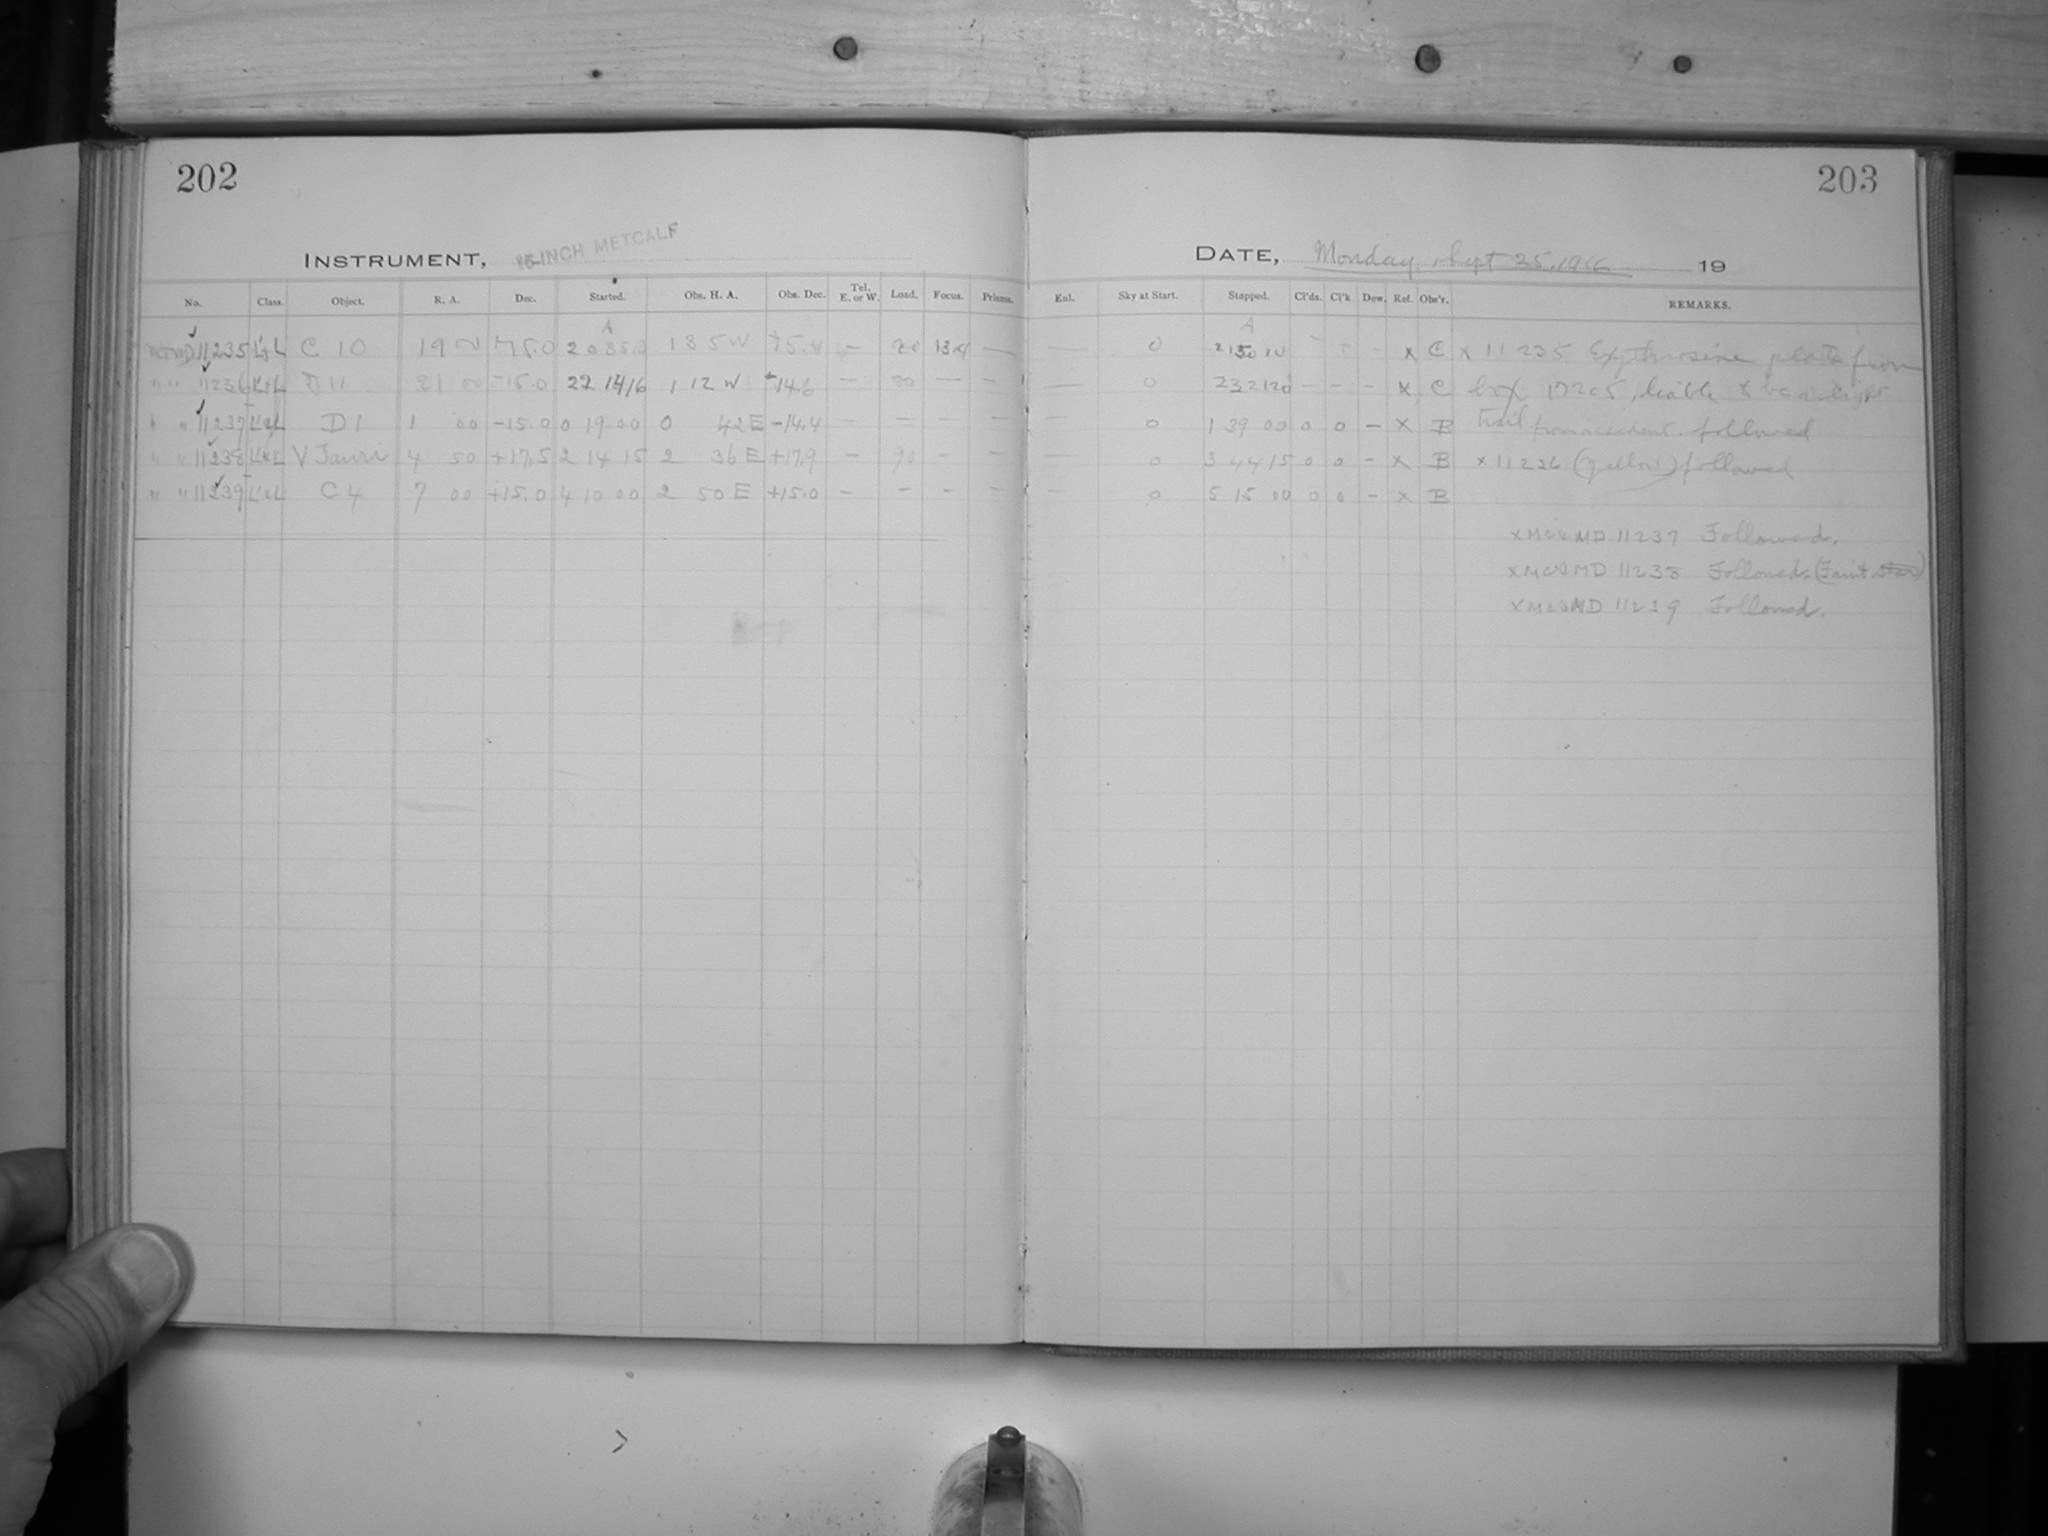 202
203
INSTRUMENT, 16-INCH METCALF
DATE, Monday, Sept 25, 1916 19
No. Class. Object. R. A. Dec. Started. Obs. H. A. Obs. Dec. Tel. E. or W. Load. Focus. Prisms. Enl. Sky at Start. Stopped. Cl'ds. Cl'k Dew. Ref. Obs'r. REMARKS.
A A
11235 C 10 19 20 35 10 1 35 W — 13.4 — — 0 21 50 10 x C x 11235 Erythrosine plate from
" " 11236 D 11 21 -15.0 22 14 16 1 12 W -14.6 — — — — 0 23 21 20 - - - x C box 17205, liable to
" " 11237 D 1 1 00 -15.0 0 19 00 0 42 E -14.4 — — — — — 0 1 39 00 0 0 - x B trail from accident. followed
" " 11238 V Tauri 4 50 +17.5 2 14 15 2 36 E +17.9 - — — — 0 3 44 15 0 0 - x B x 11236 (yellow) followed
" " 11239 C 4 7 00 +15.0 4 10 00 2 50 E +15.0 - - - - — 0 5 15 00 0 0 - x B
11237 Followed.
11238 Followed. (Faint
11239 Followed.